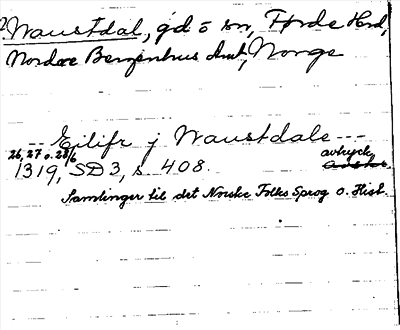 Naustdal, gd o sn, Førde Hd,
Nordre Bergenhus Amt, Norge
--- Eilifr j Naustdale ---
26, 27 o. 28/6 avtryck
1319, SD 3, s. 408.
Samlinger til det Norske Folks Sprog o. Hist.